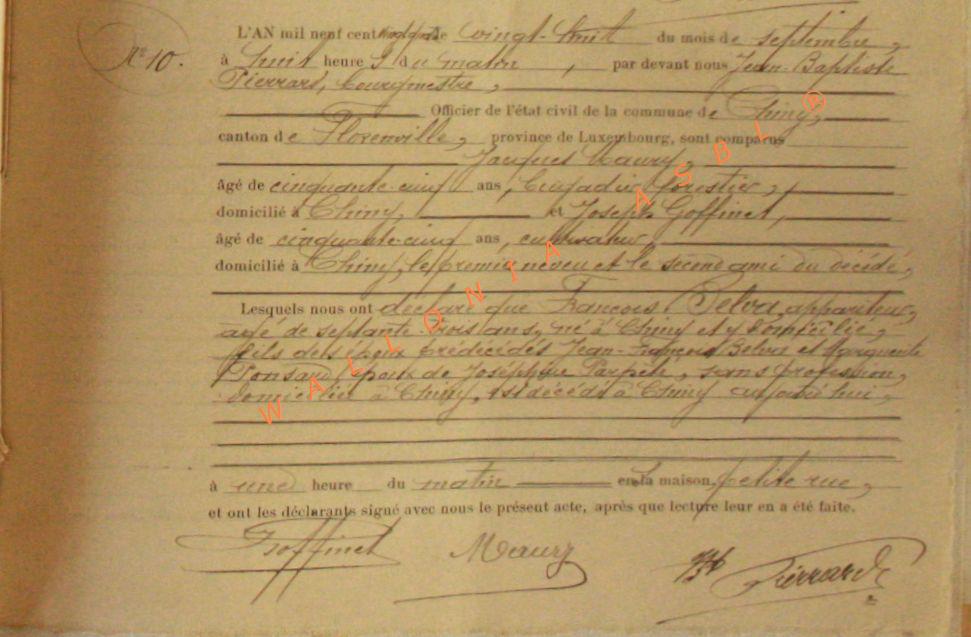 N° 10.
L'AN mil neuf cent le vingt-huit du mois de septembre,
à huit heures du matin, par devant nous Jean-Baptiste
Pierrard, bourgmestre,
Officier de l'état civil de la commune de Chiny,
canton de Florenville, province de Luxembourg, sont comparus
Jacques Maury,
âgé de cinquante-cinq ans, brigadier forestier,
domicilié à Chiny, et Joseph Goffinet,
âgé de cinquante-cinq ans, cultivateur,
domicilié à Chiny, le premier neveu et le second ami du décédé,
Lesquels nous ont déclaré que François Pelva, appariteur,
agé de septante-trois ans, né à Chiny et y domicilié,
fils des époux prédécédés Jean-François et Marguerite
Ponsard, époux de Joséphine, sans profession,
domiciliée à Chiny, est décédé à Chiny aujourd'hui,
à une heure du matin en la maison, petite rue,
et ont les déclarants signé avec nous le présent acte, après que lecture leur en a été faite.
Goffinet Maury JB Pierrard
WALLONIA ASBL ®